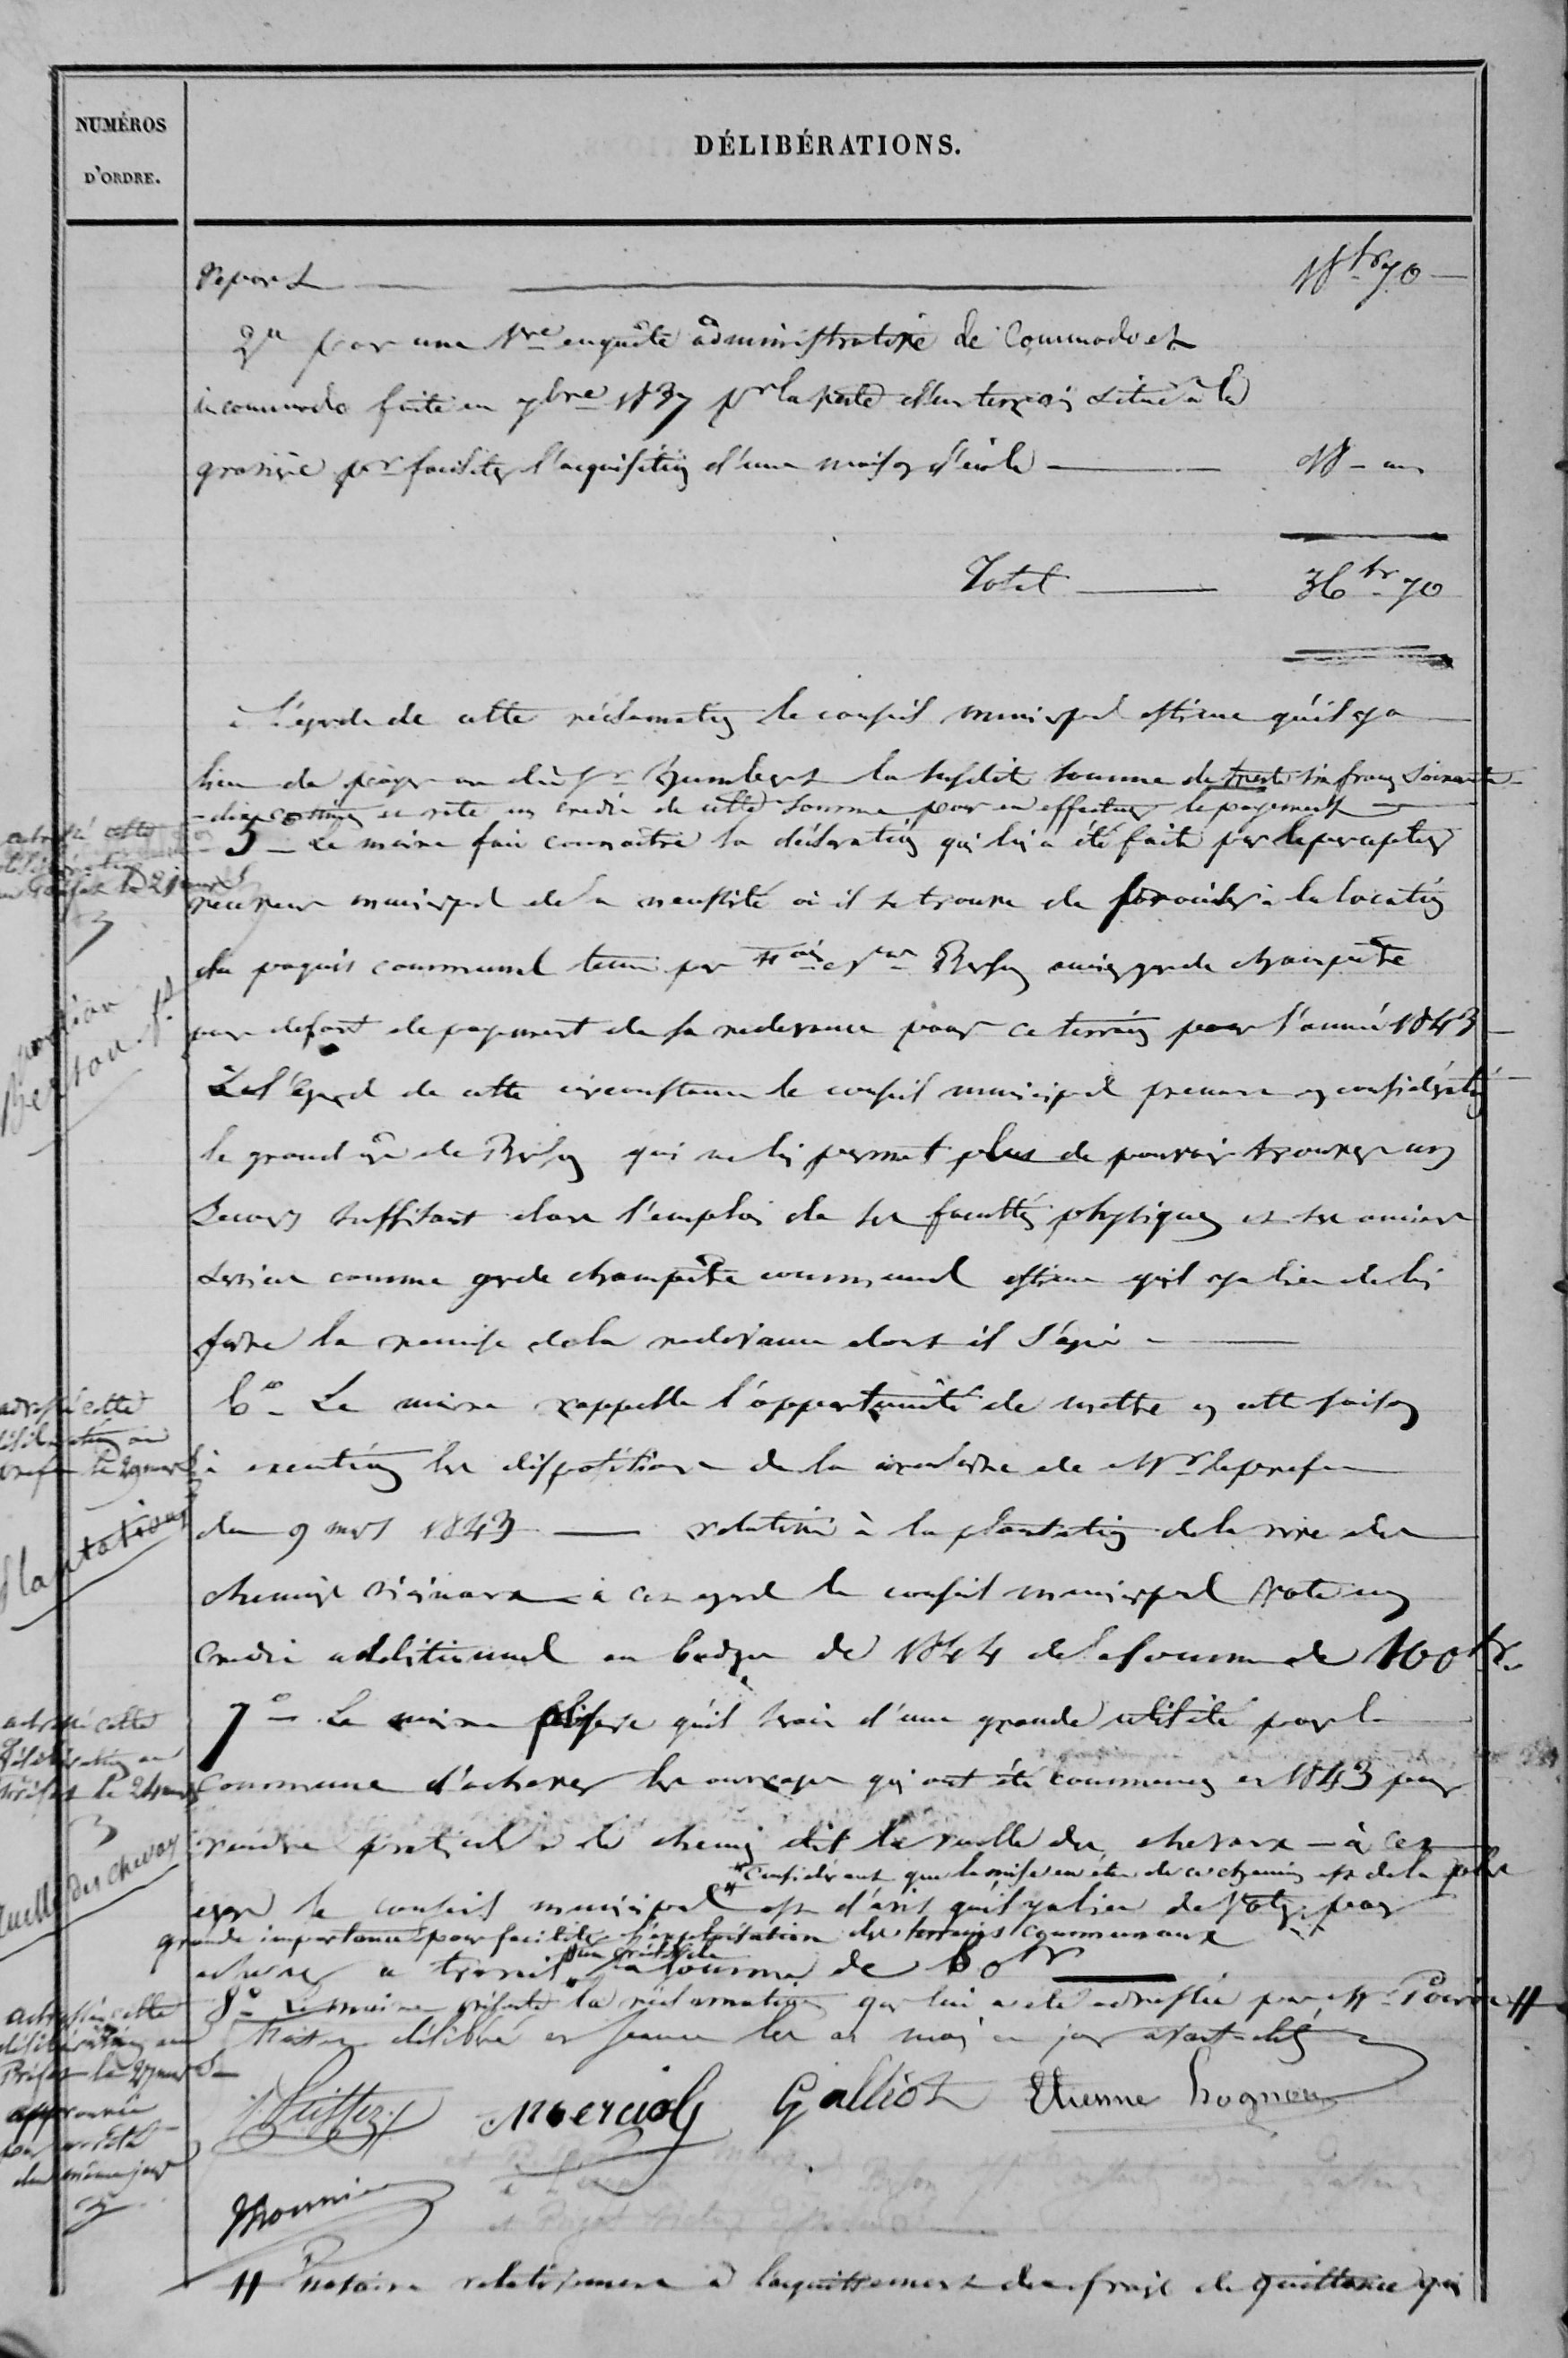 NUMÉROS
D'ORDRE.
DÉLIBÉRATIONS.
Report 18 fr 70
2° pour une 1re enquête administrative de Commodo et
incommodo faite en 7bre 1837 pr la d'un terrain situé à la
pr faciliter l'acquisition d'une maison d'école 18 -
Total 36 fr 70
à l'égard de cette réclamation le conseil municipal estime qu'il y a
lieu de payer au dit Sr Humbert la susdite somme de trente six francs soixante
-dix centimes et vote un crédit de cette somme pour en effectuer le payement
adressé cette
délibération
au Préfet le 21 mars
5° Le maire fait connaître la déclaration qui lui a été faite par le percepteur
receveur municipal de la nécessité où il se trouve de à la location
du paquis communal tenu par Berson ancien garde champêtre
par défaut de payement de sa redevance pour ce terrain pour l'année 1843
Berson
à l'égard de cette circonstance le conseil municipal prenant en considération
le grand âge de Berson qui ne lui permet plus de pouvoir trouver un
secours suffisant dans l'emploi de ses facultés physiques et ses anciens
services comme garde champêtre communal estime qu'il y a lieu de lui
faire la remise de la redevance dont il s'agit
adressé cette
délibération au
préfet le 29 mars
Plantations
6° Le maire rappelle l'opportunité de mettre en cette saison
à exécution les dispositions de la circulaire de Mr le préfet
du 9 mars 1843 relative à la plantation de la rive des
chemins vicinaux à cet égard le conseil municipal vote un
crédit additionnel au budget de 1844 de la somme de 100 fr.
adressé cette
délibération au
Préfet le 24 mars
Ruelle des chevaux
7° Le maire expose qu'il serait d'une grande utilité pour la
commune d'achever les ouvrages qui ont été commencés en 1843 pour
rendre praticable le chemin dit la ruelle des chevaux - à cet
Considérant que la mise en état de ce chemin est de la plus
égard le conseil municipal est d'avis qu'il y a lieu de voter pour
grande importance pour faciliter l'exploitation des terrains communaux
un crédit de
achever ce travail la somme de 60 fr
adressée cette
délibération au
Préfet le 27 mars
approuvée
par arrêté
du même jour
8° Le maire présente la réclamation qui lui a été adressée par Mr Poirée #
Fait et délibéré en séance les an mois et jour avant-dits
Merciol Galliot Etienne Hognon
Thouvenin
# Notaire relativement à l'acquittement des frais de quittance qui